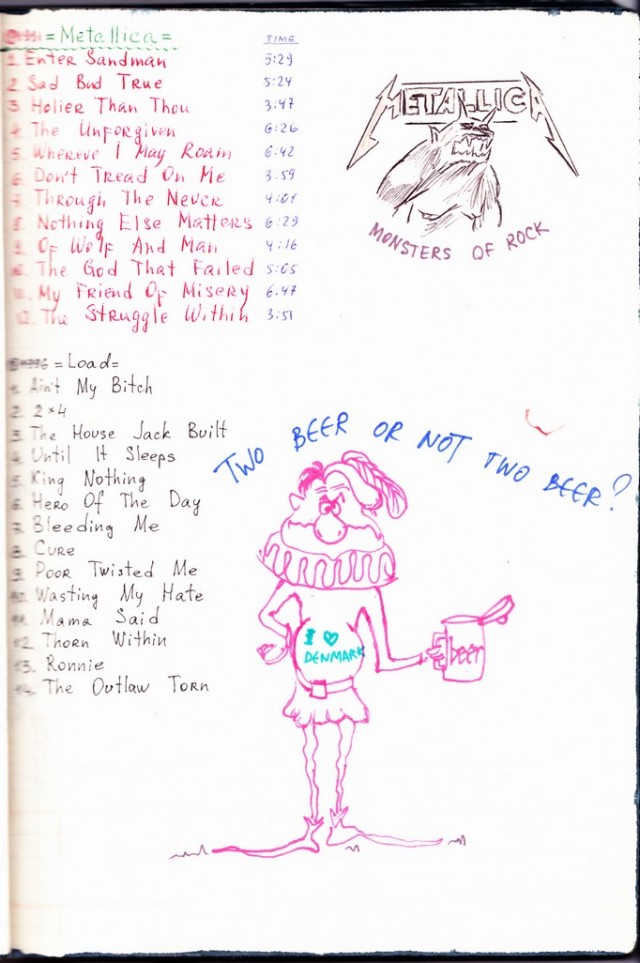 1991 = Metallica =
TIME
1. Enter Sandman 5:29
2. Sad But True 5:24
3. Holier Than Thou 3:47
4. The Unforgiven 6:26
5. Whereve I May Roam 6.42
6. Don't Tread On Me 3.59
7. Through The Never 4:01
8. Nothing Else Matters 6:29
9. Of Wolf And Man 4:16
10. The God That Failed 5:05
11. My Friend Of Misery 6.47
12. The Struggle Within 3:51
METALLICA
MONSTERS OF ROCK
1996 =Load=
1. Ain't My Bitch
2. 2×4
3. The House Jack Built
4. Until It Sleeps
5. King Nothing
6. Hero Of The Day
7. Bleeding Me
8. Cure
9. Poor Twisted Me
10. Wasting My Hate
11. Mama Said
12. Thorn Within
13. Ronnie
14. The Outlaw Torn
TWO BEER OR NOT TWO BEER?
I ♥
DENMARK
beer